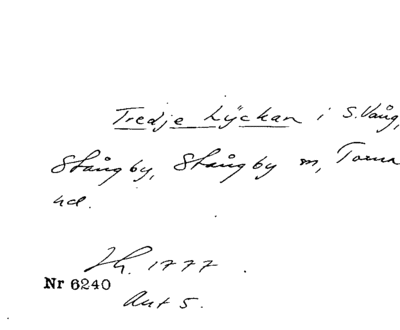 Tredje Lÿckan i S. Vång,
Stångby, Stångby sn, Torna
hd.
Lh. 1777.
Nr 6240
Akt 5.